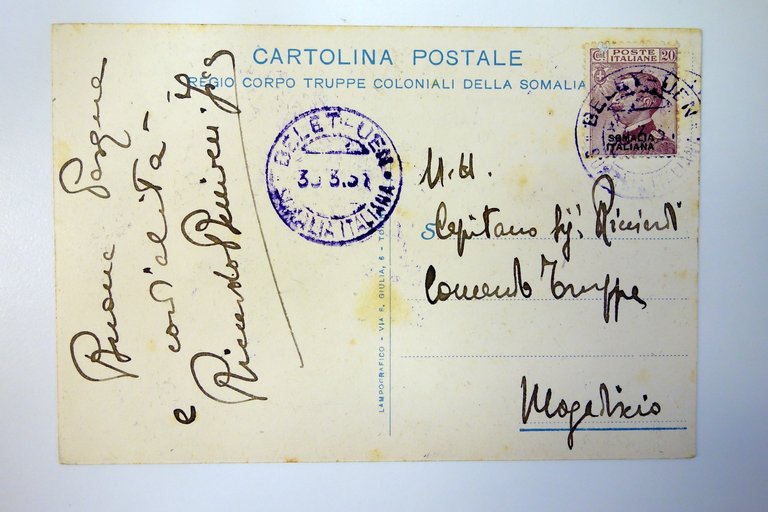 CARTOLINA POSTALE
REGIO CORPO TRUPPE COLONIALI DELLA SOMALIA
POSTE
ITALIANE
Ct. 20
SOMALIA
ITALIANA
BELET-UEN
BELET-UEN
SOMALIA ITALIANA
Buona Pasqua
e cordialità
Riccardo
N.H.
Capitano Sig.
Comando Truppe
Mogadiscio
LAMPOGRAFICO - VIA S. GIULIA, 6 - TO